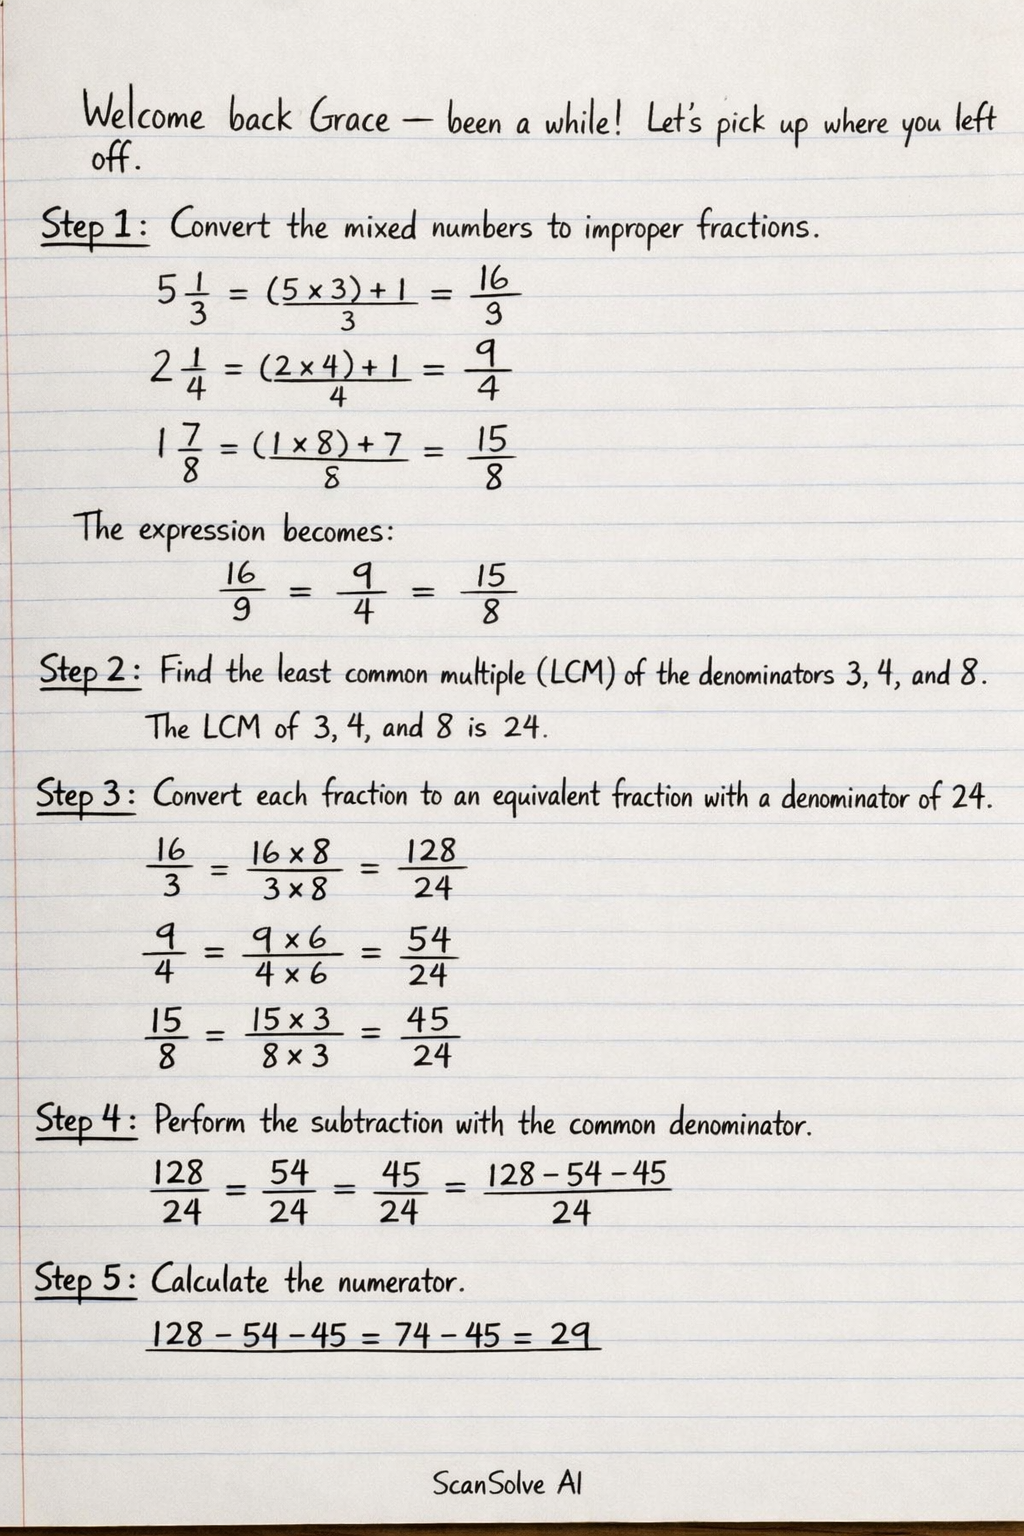 Welcome back Grace — been a while! Let's pick up where you left
off.
Step 1: Convert the mixed numbers to improper fractions.
5 1/3 = (5 × 3) + 1 / 3 = 16/9
2 1/4 = (2 × 4) + 1 / 4 = 9/4
1 7/8 = (1 × 8) + 7 / 8 = 15/8
The expression becomes:
16/9 = 9/4 = 15/8
Step 2: Find the least common multiple (LCM) of the denominators 3, 4, and 8.
The LCM of 3, 4, and 8 is 24.
Step 3: Convert each fraction to an equivalent fraction with a denominator of 24.
16/3 = 16 × 8 / 3 × 8 = 128/24
9/4 = 9 × 6 / 4 × 6 = 54/24
15/8 = 15 × 3 / 8 × 3 = 45/24
Step 4: Perform the subtraction with the common denominator.
128/24 = 54/24 = 45/24 = 128 – 54 – 45 / 24
Step 5: Calculate the numerator.
128 – 54 – 45 = 74 – 45 = 29
ScanSolve AI